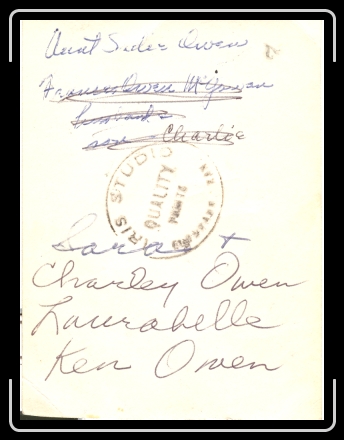 Aunt Sudie Owen
Frances Owen McGowan
Son Charlie
IRIS STUDIO
QUALITY
Sara +
Charley Owen
Laurabelle
Ken Owen